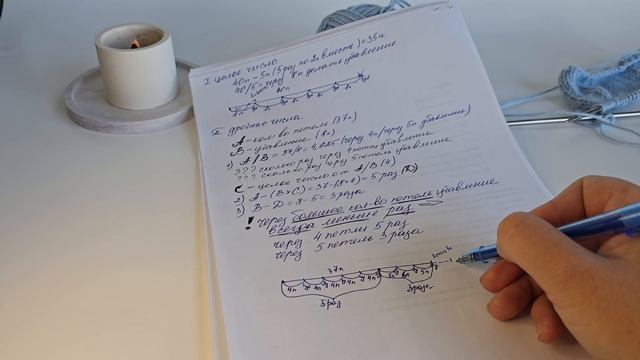 I целое число
40п - 5п (5 раз по 2п вместе) = 35п
40/5 = через 8п делать убавление
40п
II дробные числа
А - кол-во петель (37п)
В - убавление (8п)
1) А/В = 37/8 = 4,625 (через 4п/через 5п убавление)
??? сколько раз через 4 петли убавление
??? сколько раз через 5 петель убавление
С - целое число от А/В (4)
2) А - (В×С) = 37 - (8×4) = 5 раз (D)
3) В - D = 8 - 5 = 3 раза
! через большее кол-во петель убавление
всегда меньше раз
через 4 петли 5 раз
через 5 петель 3 раза
37п
4п 4п 4п 4п 4п 5п 5п 5п
5 раз 3 раза